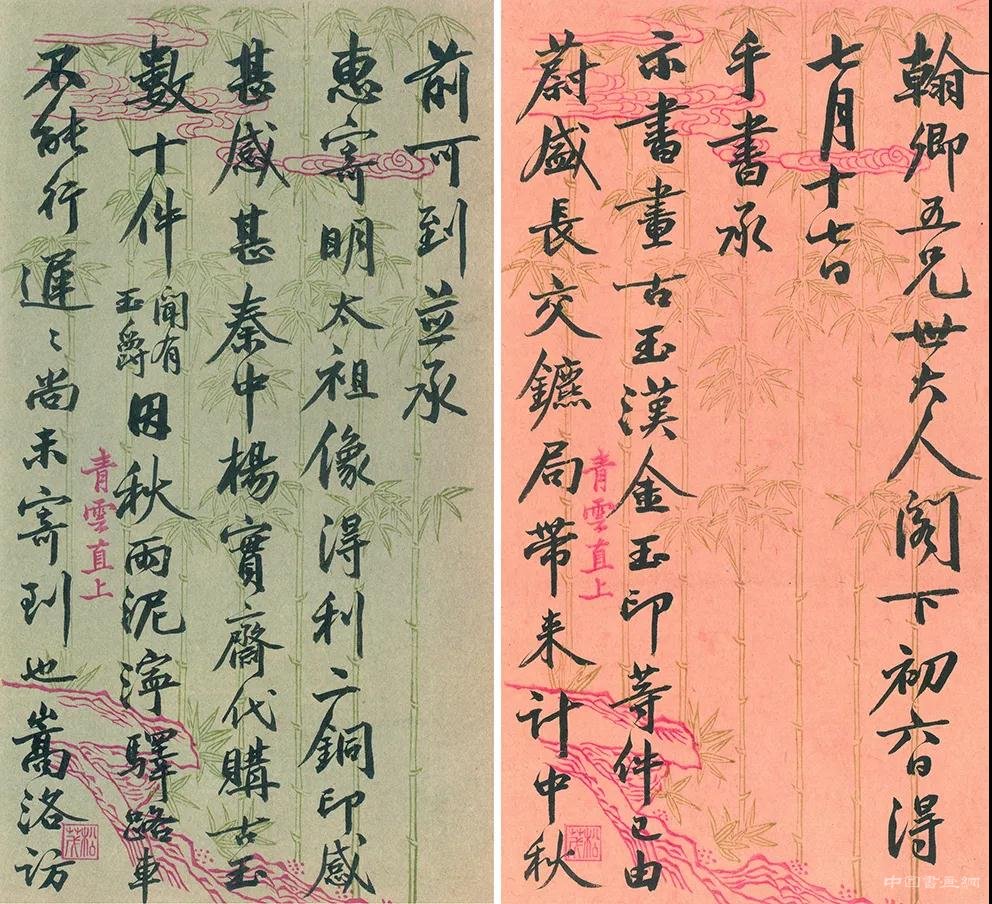 翰卿五兄世大人阁下初六日得
七月十七日
手書承
示書畫古玉漢金玉印等件已由
蔚盛長交鑣局带来计中秋
青雲直上
松茂
中国書画網
前可到並承
惠寄明太祖像得利二銅印感
甚感甚秦中楊實齋代購古玉
數十件聞有玉爵因秋雨泥濘驛路車
不能行遲〻尚未寄到也嵩洛訪
青雲直上
松茂